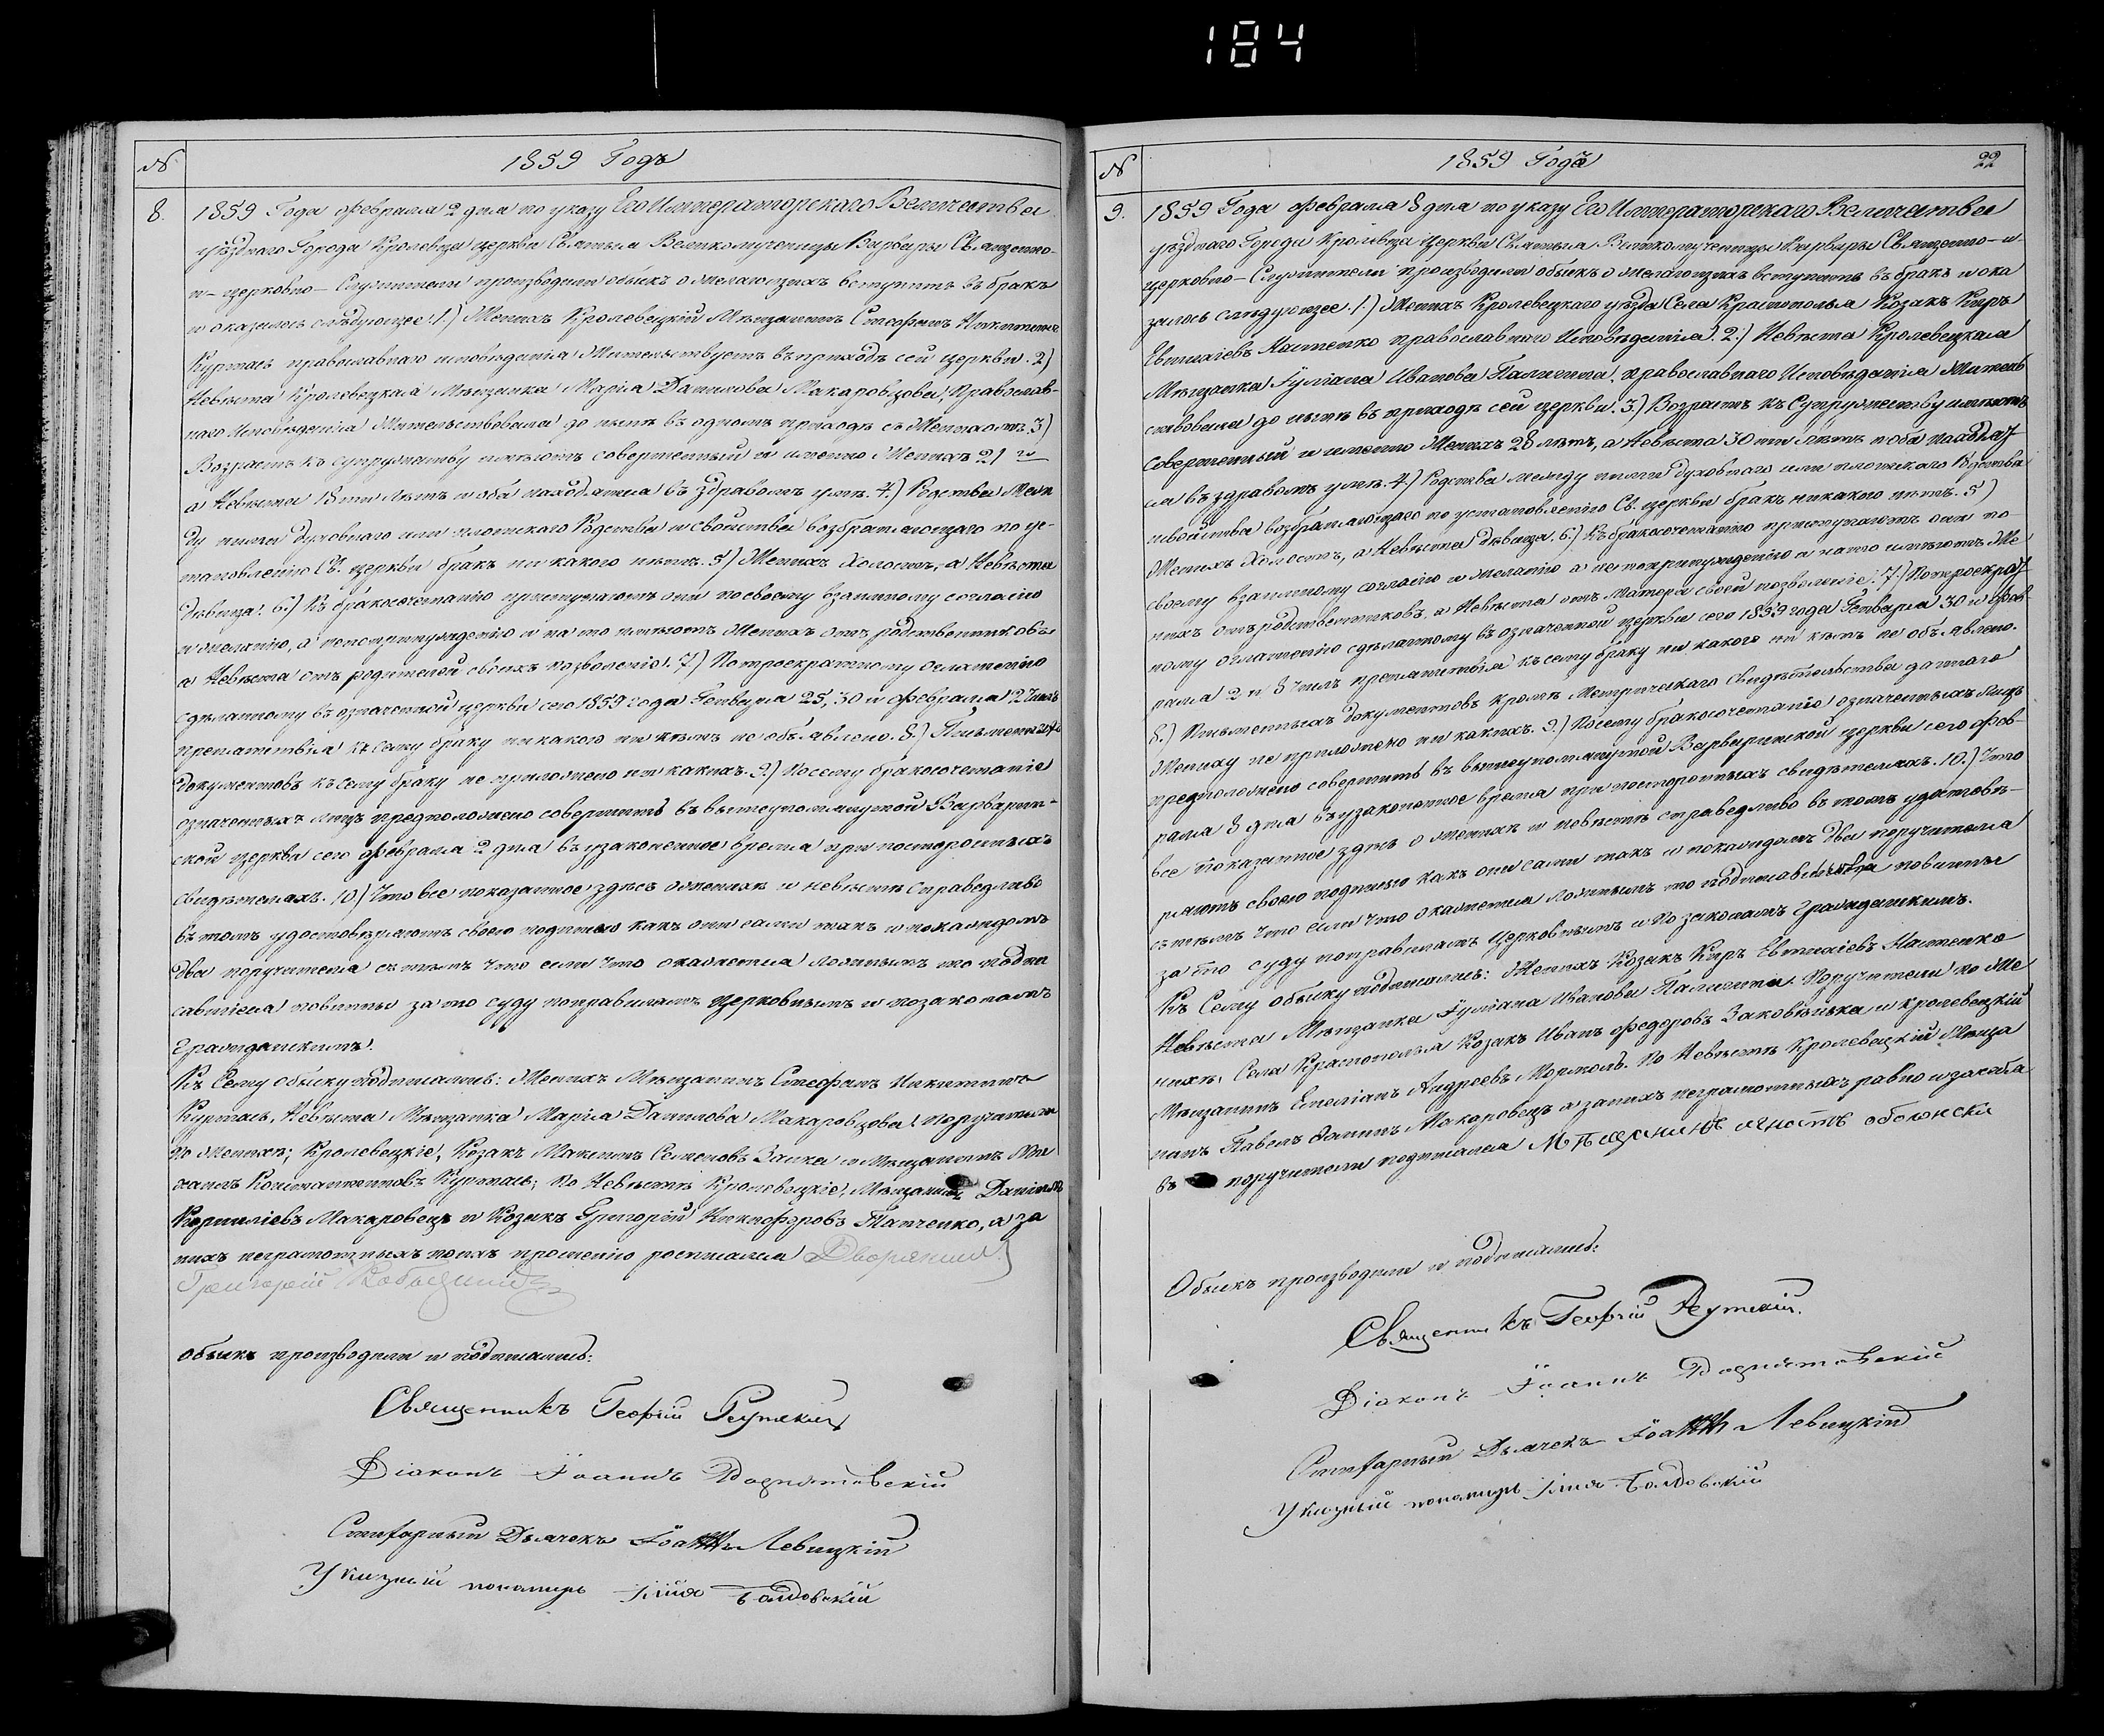 184
№
1859 Годъ
8.
1859 Года февраля 2 дня по указу Его Императорскаго Величества
уѣзднаго Города Кролевца церкви Святыя Великомученицы Варвары Священно-
и-церковно-Служители производили обыскъ о желающихъ вступить въ бракъ
и оказалось слѣдующее: 1.) Женихъ Кролевецкій Мѣщанинъ Стефанъ Никитинъ
Куртасъ православнаго исповѣданія Жительствуетъ въ приходѣ сей церкви. 2.)
Невѣста Кролевецкая Мѣщанка Марія Данилова Макаровцова, Православ-
наго Исповѣданія Жительствовала до нынѣ въ одномъ приходѣ съ Женихомъ. 3)
Возрастъ къ супружеству имѣютъ совершенный и именно Женихъ 21 го
а Невѣста 18 ти лѣтъ и оба находятся въ здравомъ умѣ. 4.) Родства Меж
ду ними духовнаго или плотскаго Родства и свойства возбраняющаго по ус-
тановленію Св. церкви бракъ ни какого нѣтъ. 5) Женихъ Холостъ, а Невѣста
дѣвица. 6.) Къ бракосочетанію приступаютъ они по своему взаимному согласію
и желанію, а не по принужденію и на то имѣютъ Женихъ отъ родственниковъ
а Невѣста отъ родителей своихъ позволеніе. 7.) По троекратному оглашенію
сдѣланному въ означенной церкви сего 1859 года Генваря 25, 30 и Февраля 2 Числъ
препятствія къ сему браку ни какого ни кѣмъ не объявлено. 8.) Письменныхъ
документовъ къ сему браку не приложено ни какихъ. 9.) Посему бракосочетаніе
означенныхъ лицъ предположено совершить въ вышеупомянутой Варварин-
ской церкви сего февраля 2 дня въ узаконенное время при постороннихъ
свидѣтеляхъ. 10.) Что все показанное здѣсь о женихѣ и невѣстѣ справедливо
въ томъ удостовѣряютъ своею подписью какъ они сами такъ и по каждомъ
два поручителя съ тѣмъ что если что окажется ложнымъ то подпи
савшіеся повинны за то суду по правиламъ церковнымъ и по законамъ
гражданскимъ.
Къ Сему обыску подписались: Женихъ Мѣщанинъ Стефанъ Никитинъ
Куртасъ, Невѣста Мѣщанка Марія Данилова Макаровцова, поручители
по Женихѣ; Кролевецкіе, Козакъ Максимъ Семеновъ Заика и Мѣщанинъ Ми
хаилъ Константиновъ Куртасъ; По Невѣстѣ Кролевецкіе, Мѣщанинъ Даніилъ
Корниліевъ Макаровецъ и Козакъ Григорій Никифоровъ Ткаченко, а за
нихъ неграмотныхъ по ихъ прошенію росписался Дворянинъ
Григорій
обыскъ производили и подписались:
Священникъ Георгій Реутскій
Діаконъ Іоаннъ
Стихарный Дьячекъ Іоаннъ Левицкій
Указный пономарь
№
1859 Годъ
22
9.
1859 Года февраля 8 дня по указу Его Императорскаго Величества
уѣзднаго Города Кролевца Церкви Святыя Великомученицы Варвары Священно-и-
церковно-Служители производили обыскъ о желающихъ вступить въ бракъ и ока
залось слѣдующее. 1.) Женихъ Кролевецкаго уѣзда Села Краснополья Козакъ Киръ
Евтихіевъ Настенко православнаго Исповѣданія. 2.) Невѣста Кролевецкая
Мѣщанка Іуліана Иванова православнаго Исповѣданія Житель
ствовала до нынѣ въ приходѣ сей церкви. 3.) Возрастъ къ Супружеству имѣютъ
Совершенный и именно Женихъ 28 лѣтъ, а Невѣста 30 ти лѣтъ и оба находят
ся въ здравомъ умѣ. 4.) Родства между ними духовнаго или плотскаго Родства
и свойства возбраняющаго по установленію Св. церкви бракъ никакого нѣтъ. 5)
Женихъ Холостъ, а Невѣста дѣвица. 6.) Къ бракосочетанію приступаютъ они по
своему взаимному согласію и желанію а не по принужденію а на то имѣютъ Же
нихъ отъ родственниковъ, а Невѣста отъ матери своей позволеніе. 7.) По троекрат
ному оглашенію сдѣланному въ означенной церкви сего 1859 года Генваря 30 и Фев-
раля 2 и 8 Числъ препятствія къ сему браку ни какого ни кѣмъ не объявлено.
8.) Письменныхъ документовъ кромѣ Метрическаго свидѣтельства даннаго
Жениху не приложено ни какихъ. 9.) Посему бракосочетаніе означенныхъ лицъ
предположено совершить въ вышеупомянутой Варваринской церкви сего Фев-
раля 8 дня въ узаконенное время при постороннихъ свидѣтеляхъ. 10.) Что
все показанное здѣсь о женихѣ и невѣстѣ справедливо въ томъ удостовѣ-
ряютъ своею подписью какъ они сами такъ и по каждомъ два поручителя
съ тѣмъ что если что окажется ложнымъ то подписавшіеся повинны
за то суду по правиламъ Церковнымъ и по законамъ гражданскимъ.
Къ Сему обыску подписались: Женихъ Козакъ Киръ Евтихіевъ Настенко
Невѣста Мѣщанка Іуліана Иванова Поручители по Же
нихѣ, Села Краснополья Козакъ Иванъ Федоровъ и Кролевецкій
Мѣщанинъ Емеліанъ Андреевъ По Невѣстѣ Кролевецкій Мѣща
нинъ Павелъ Макаровецъ а за нихъ неграмотныхъ равно и за
поручители подписался Мѣщанинъ
Обыскъ производили и подписались:
Священникъ Георгій Реутскій.
Діаконъ Іоаннъ
Стихарный Дьячекъ Іоаннъ Левицкій
Указный пономарь